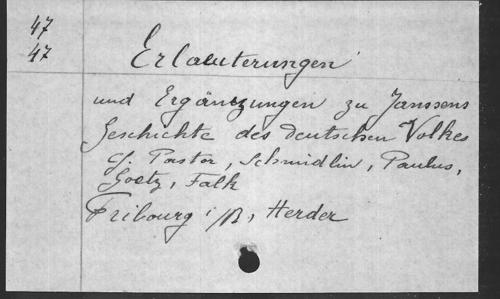 47
47
Erlaeuterungen
und Ergänzungen zu Janssens
Geschichte des deutschen Volkes
cf. Pastor, Schmidlin, Paulus,
Goetz, Falk
Fribourg i/B, Herder